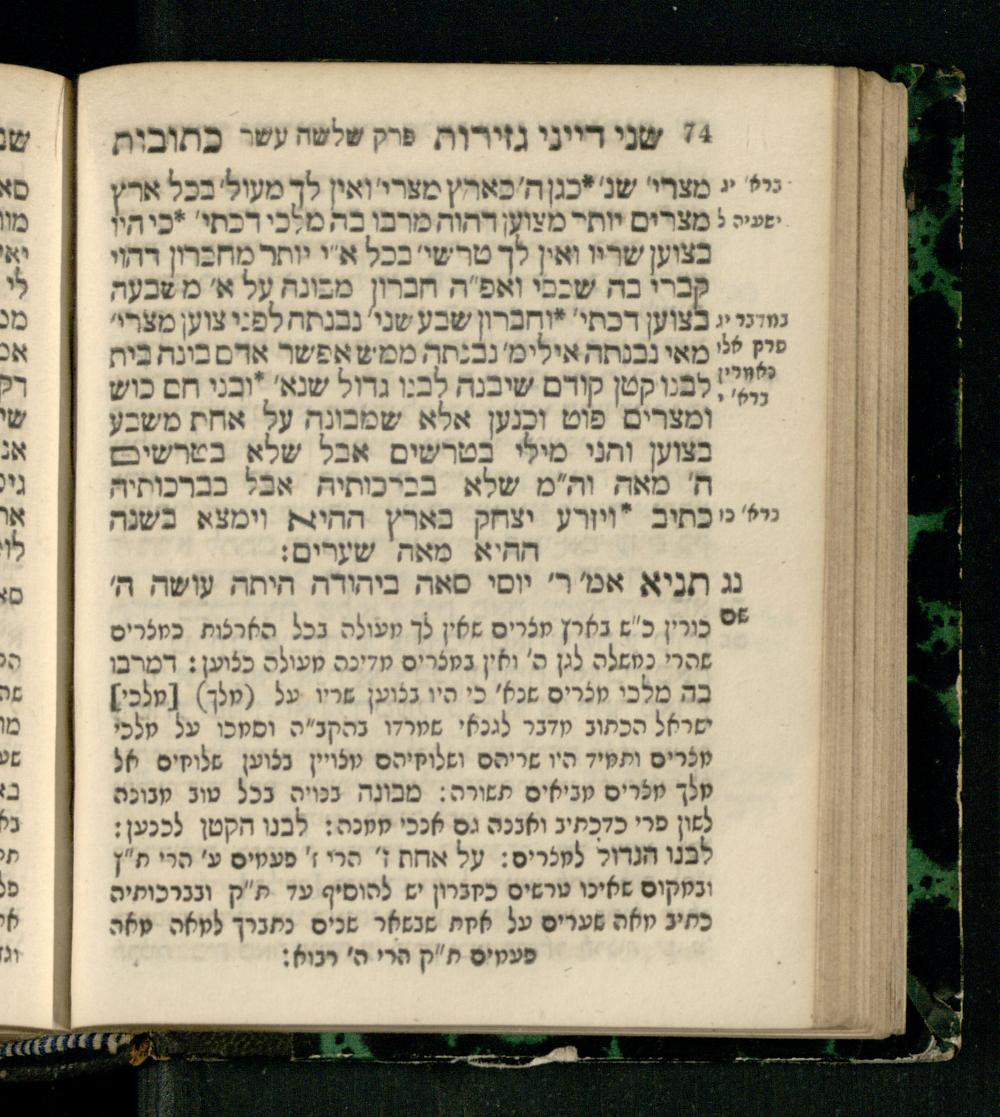 74 שני דייני גזירות פרק שלשה עשר כתובות
ברא' יג
מצרי' שנ' *כגן ה' כארץ מצרי' ואין לך מעול' בכל ארץ
ישעיה ל
מצרים יותר מצוען דהוה מרבו בה מלכי דכתי' *כי היו
בצוען שריו ואין לך טרשי' בכל א"י יותר מחברון דהוי
קברי בה שכבי ואפ"ה חברון מבונה על א' משבעה
במדבר יג
בצוען דכתי' *וחברון שבע שני' נבנתה לפני צוען מצרי'
פרק אלו
מאי נבנתה אילימ' נבנתה ממש אפשר אדם בונה בית
נאמרין
ברא' י
לבנו קטן קודם שיבנה לבנו גדול שנא' *ובני חם כוש
ומצרים פוט וכנען אלא שמבונה על אחת משבע
בצוען והני מילי בטרשים אבל שלא בטרשים
ה' מאה וה"מ שלא בברכותיה אבל בברכותיה
ברא' כו
כתיב *ויזרע יצחק בארץ ההיא וימצא בשנה
ההיא מאה שערים:
נג תניא אמ' ר' יוסי סאה ביהודה היתה עושה ה'
שם
כורין כ"ש בארץ מצרים שאין לך מעולה בכל הארצות כמצרים
שהרי נמשלה לגן ה' ואין במצרים מדינה מעולה כצוען: דמרבו
בה מלכי מצרים שנא' כי היו בצוען שריו על (מלך) [מלכי]
ישראל הכתוב מדבר לגנאי שמרדו בהקב"ה וסמכו על מלכי
מצרים ותמיד היו שריהם ושלוחיהם מצויין בצוען שלוחים אל
מלך מצרים מביאים תשורה: מבונה בנויה בכל טוב מבונה
לשון פרי כדכתיב ואבנה גם אנכי ממנה: לבנו הקטן לכנען:
לבנו הגדול למצרים: על אחת ז' הרי ז' פעמים ע' הרי ת"ץ
ובמקום שאינו טרשים כחברון יש להוסיף עד ת"ק ובברכותיה
כתיב מאה שערים על אחת שבשאר שנים נתברך למאה מאה
פעמים ת"ק הרי ה' רבוא: